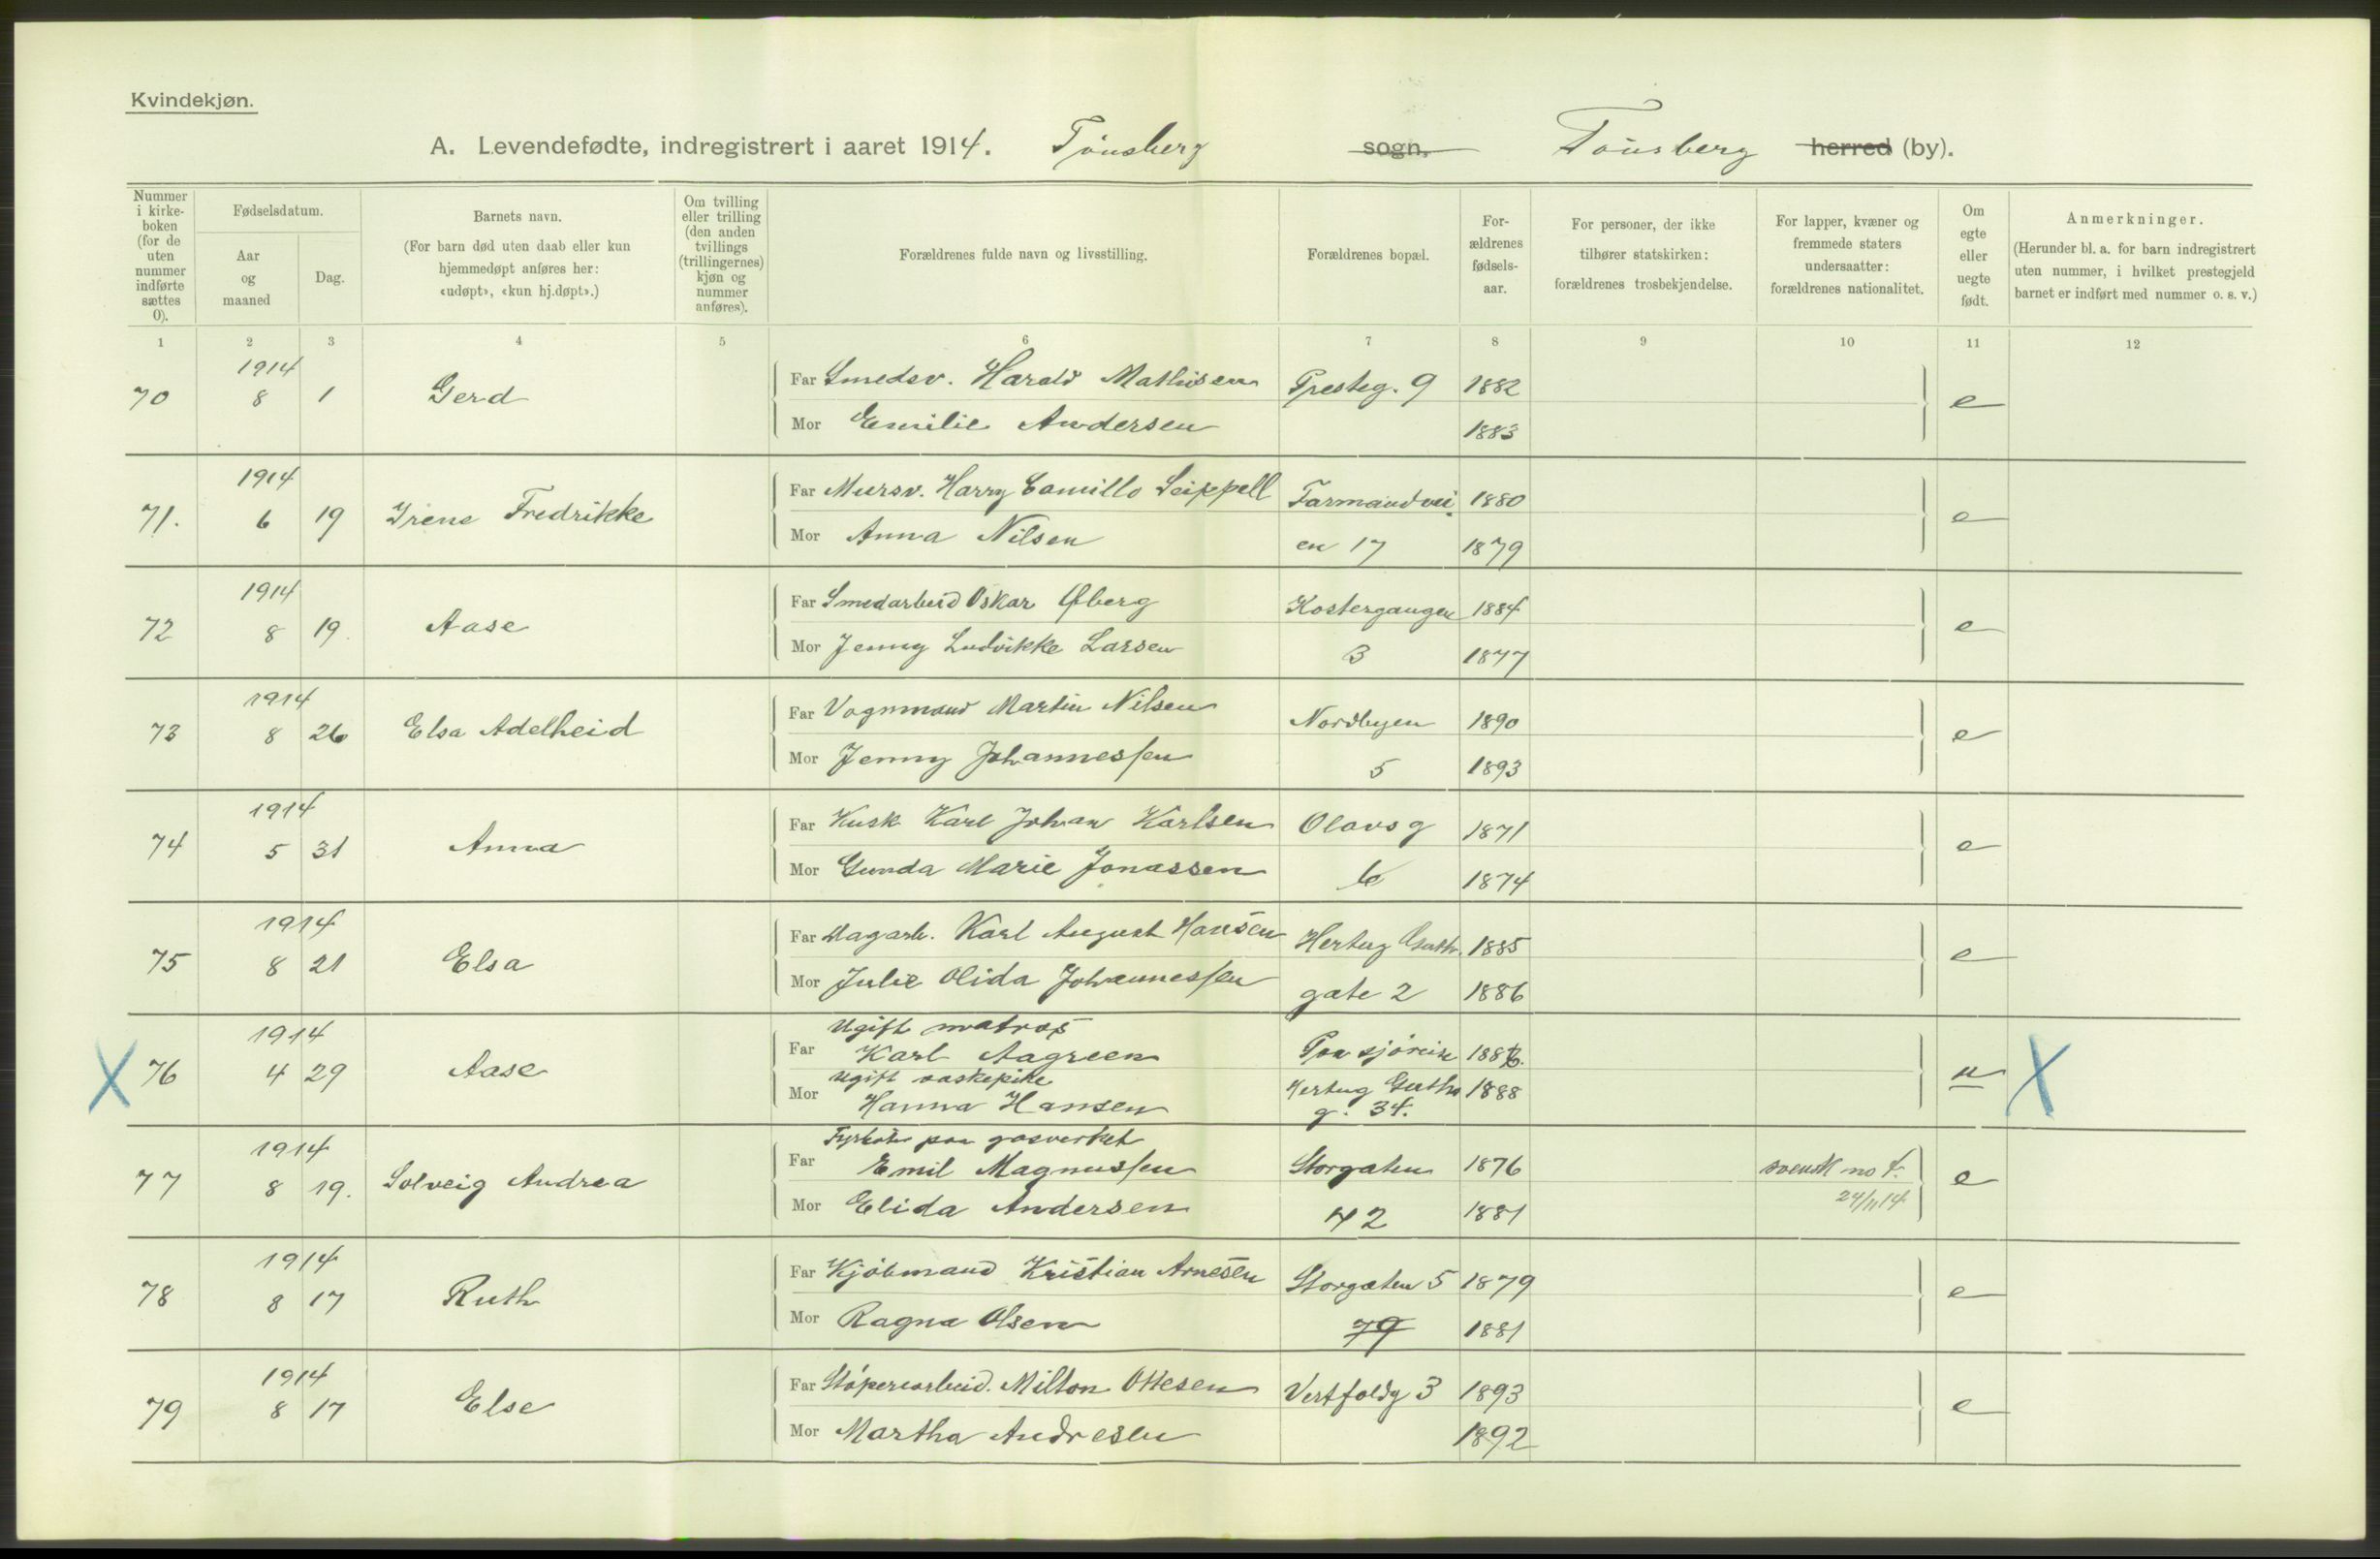 Kvindekjøn.
A. Levendefødte, indregistrert i aaret 1914. Tønsberg sogn. Tønsberg herred (by).
Nummer i kirke-boken (for de uten nummer indførte sættes 0).
Fødselsdatum.
Aar og maaned
Dag.
Barnets navn.
(For barn død uten daab eller kun hjemmedøpt anføres her: «udøpt», «kun hj.døpt».)
Om tvilling eller trilling (den anden tvillings (trillingernes) kjøn og nummer anføres).
Forældrenes fulde navn og livsstilling.
Forældrenes bopæl.
For-ældrenes fødsels-aar.
For personer, der ikke tilhører statskirken: forældrenes trosbekjendelse.
For lapper, kvæner og fremmede staters undersaatter: forældrenes nationalitet.
Om egte eller uegte født.
Anmerkninger.
(Herunder bl. a. for barn indregistrert uten nummer, i hvilket prestegjeld barnet er indført med nummer o. s. v.)
1 2 3 4 5 6 7 8 9 10 11 12
1914
70 8 1 Gerd Far Smedsv. Harald Mathisen Presteg. 9 1882 e
Mor Emilie Andersen 1883
1914
71. 6 19 Irene Fredrikke Far Mursv. Harry Camillo Seippell Farmandvei 1880 e
Mor Anna Nilsen en 17 1879
1914
72 8 19. Aase Far Smedarbeid Oskar Øberg Kostergangen 1884 e
Mor Jenny Ludvikke Larsen 3 1877
1914
73 8 26 Elsa Adelheid Far Vognmand Martin Nilsen Nordbyen 1890 e
Mor Jenny Johannessen 5 1893
1914
74 5 31 Anna Far Kusk Karl Johan Karlsen Olavsg 1871 e
Mor Gunda Marie Jonassen 6 1874
1914
75 8 21 Elsa Far Dagarb. Karl August Hansen Hertug Guth. 1885 e
Mor Julie Olida Johannessen gate 2 1886
1914
Ugift matros
X 76 4 29 Aase Far Karl Aagreen Paa sjøreise 1886. u X
Ugift vaskepike
Mor Hanna Hansen Hertug Guths g. 34. 1888
1914
Fyrbøter paa gasverket
77 8 19. Solveig Andrea Far Emil Magnussen Storgaten 1876 svensk no f. e
24/11 14
Mor Elida Andersen 42 1881
1914
78 8 17 Ruth Far Kjøbmand Kristian Arnesen Storgaten 5 1879 e
Mor Ragna Olsen 79 1881
1914
79 8 17 Else Far Støperiarbeid. Milton Ottesen Vestfoldg 3 1893 e
Mor Martha Andresen 1892